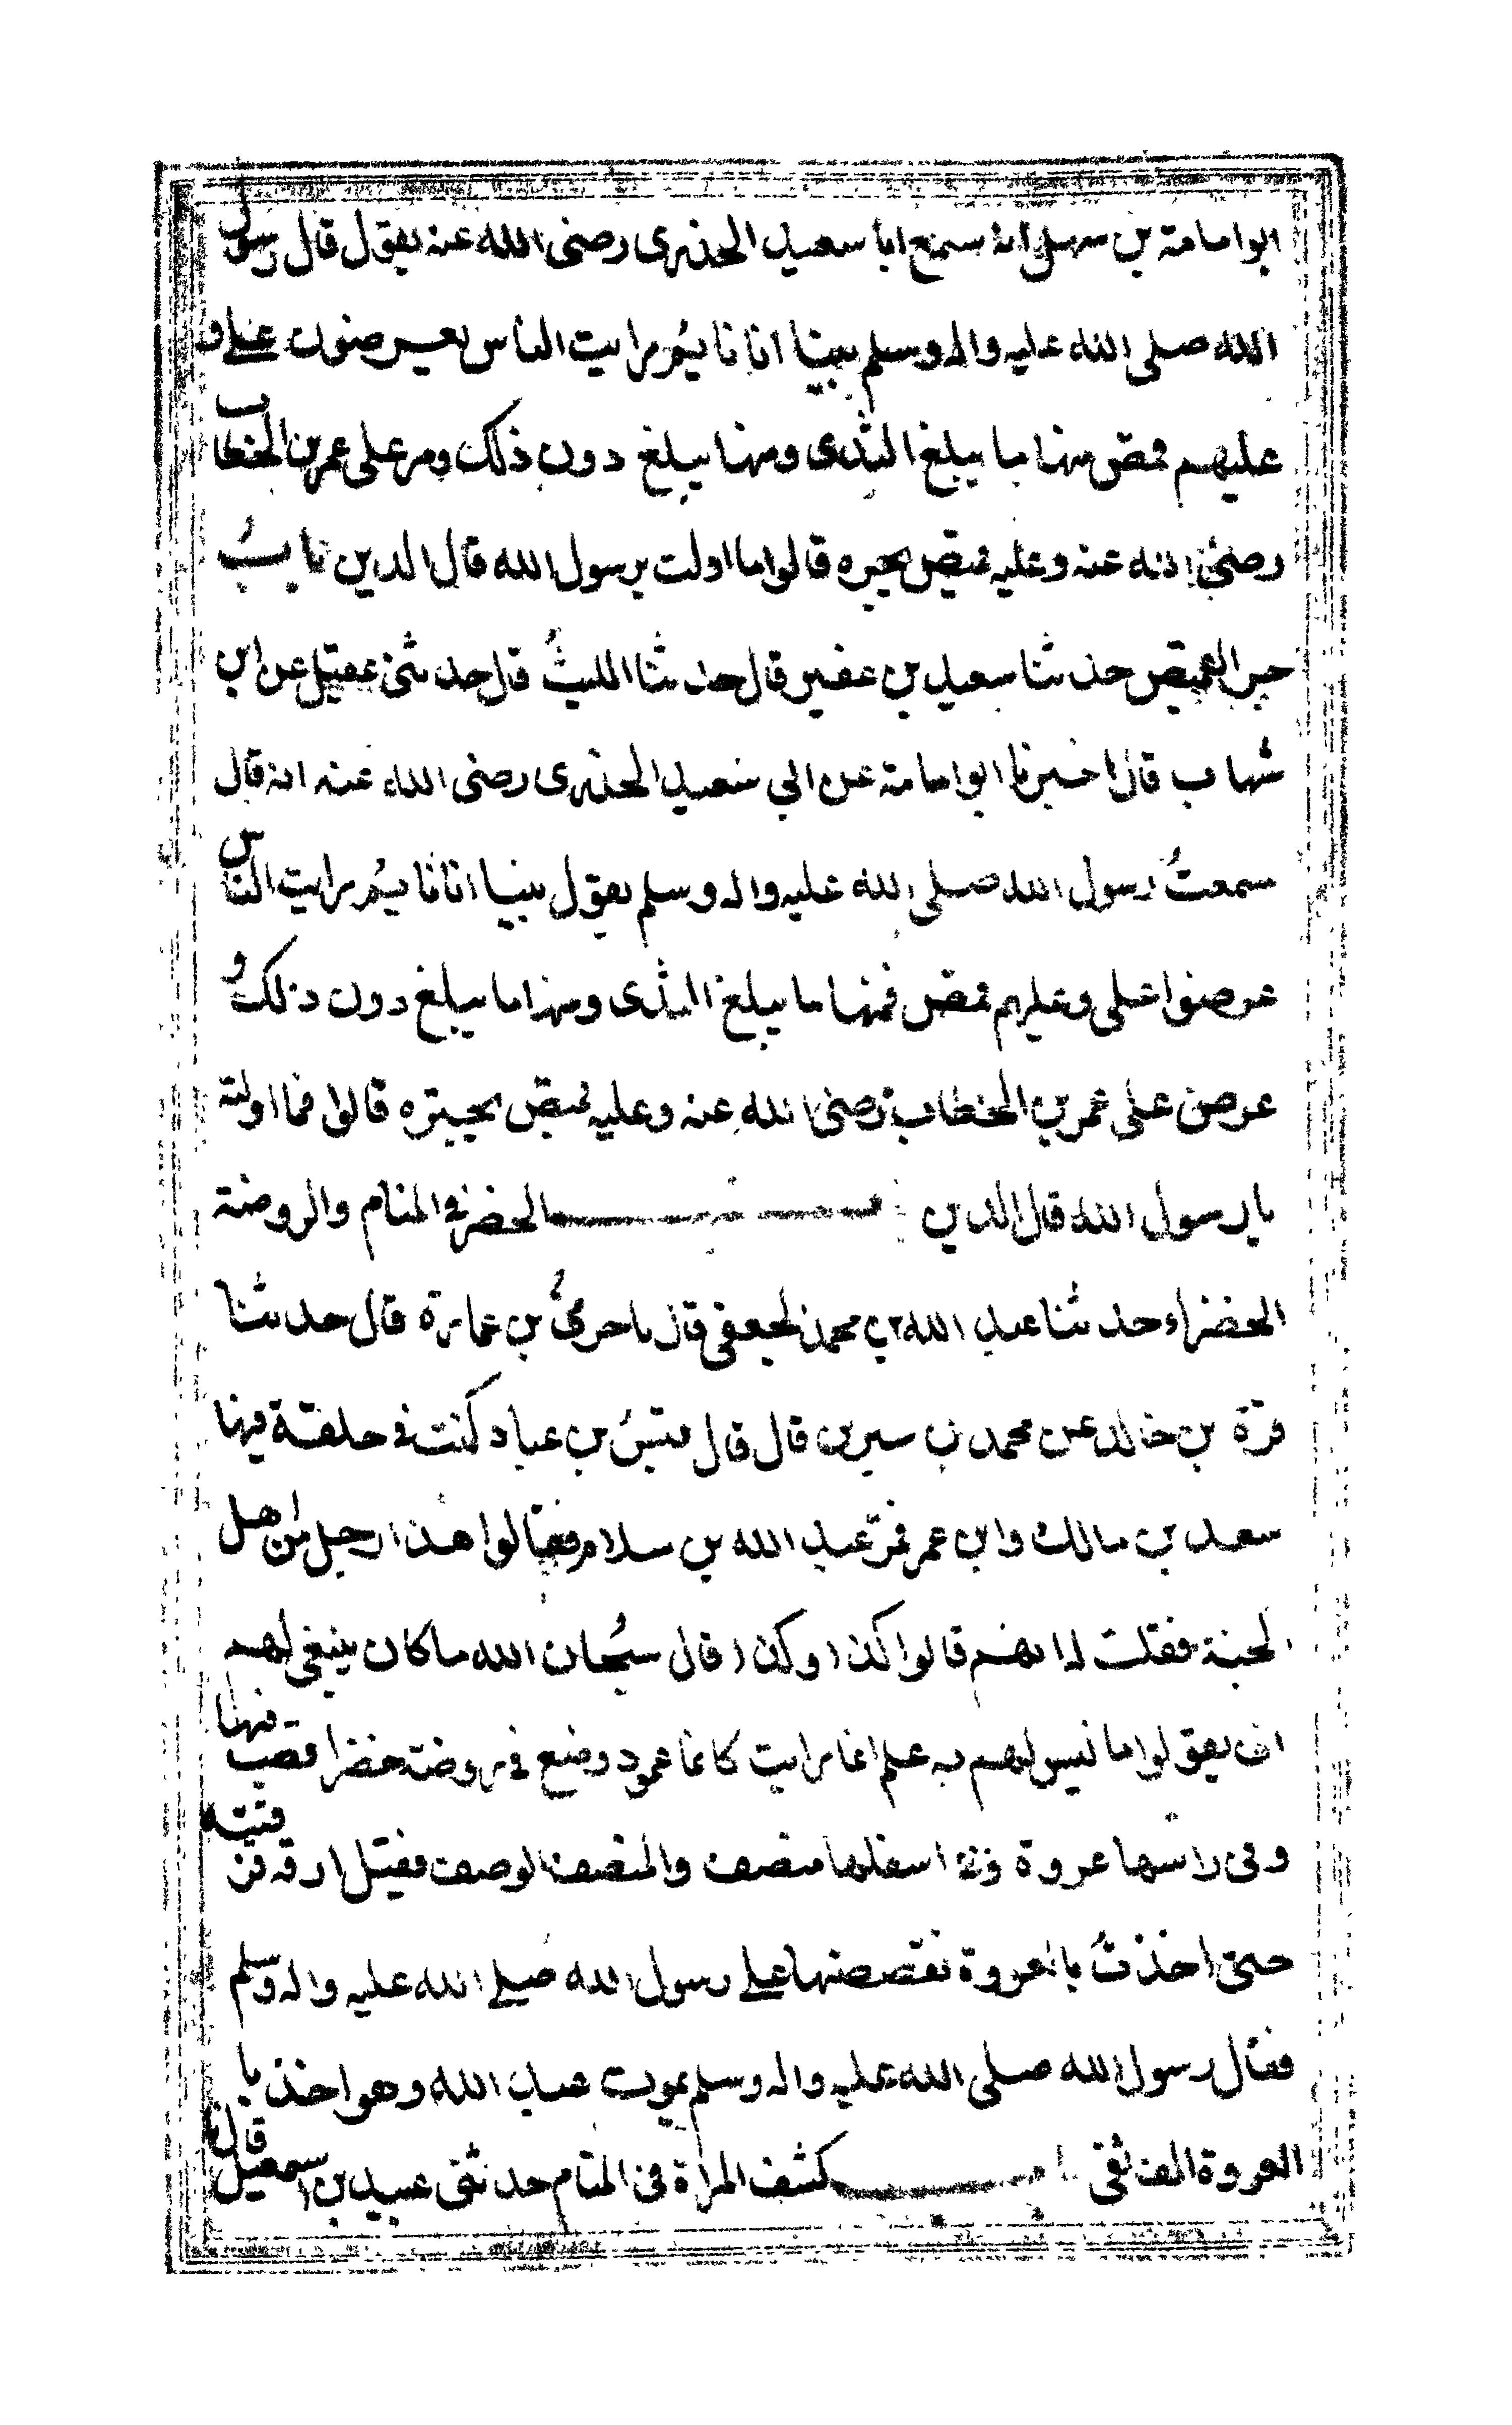 ابو امامة بن سهل انه سمع ابا سعيد الخدرى رضى الله عنه يقول قال رسول
الله صلى الله عليه واله وسلم بينا انا نايم رايت الناس يعرضون على و
عليهم قمص منها ما يبلغ الثدى ومنها يبلغ دون ذلك ومر على عمر بن الخطاب
رضى الله عنه وعليه قميص يجره قالوا ما اولت يرسول الله قال الدين باب
جر القميص حدثنا سعيد بن عفير قال حدثنا الليث قال حدثنى عقيل عن ابن
شهاب قال اخبرنا ابو امامة عن ابي سعيد الخدرى رضى الله عنه انه قال
سمعت رسول الله صلى الله عليه واله وسلم يقول بينا انا نايم رايت الناس
عرضوا على وعليهم قمص فمنها ما يبلغ الثدى ومنها ما يبلغ دون ذلك و
عرض على عمر بن الخطاب رضى الله عنه وعليه قميص يجتره قالوا فما اولته
يا رسول الله قال الدين باب الخضر في المنام والروضة
الخضراء حدثنا عبد الله بن محمد الجعفى قال نا حرمي بن عمارة قال حدثنا
قرة بن خالد عن محمد بن سيرين قال قال قيس بن عباد كنت في حلقة فيها
سعد بن مالك وابن عمر فمر عبد الله بن سلام فقالوا هذا رجل من اهل
الجنة فقلت له انهم قالوا كذا وكذا قال سبحان الله ما كان ينبغى لهم
ان يقولوا ما ليس لهم به علم انما رايت كانما عمود وضع في روضة خضرا فنصب فيها
وفى راسها عروة وفى اسفلها منصف والمنصف الوصف فقيل ارقه فرقيته
حتى اخذت بالعروة فقصصتها على رسول الله صلى الله عليه واله وسلم
فقال رسول الله صلى الله عليه واله وسلم يموت عبد الله وهو اخذ با
العروة الوثقى باب كشف المراة فى المنام حدثنى عبيد بن اسمعيل قال نا